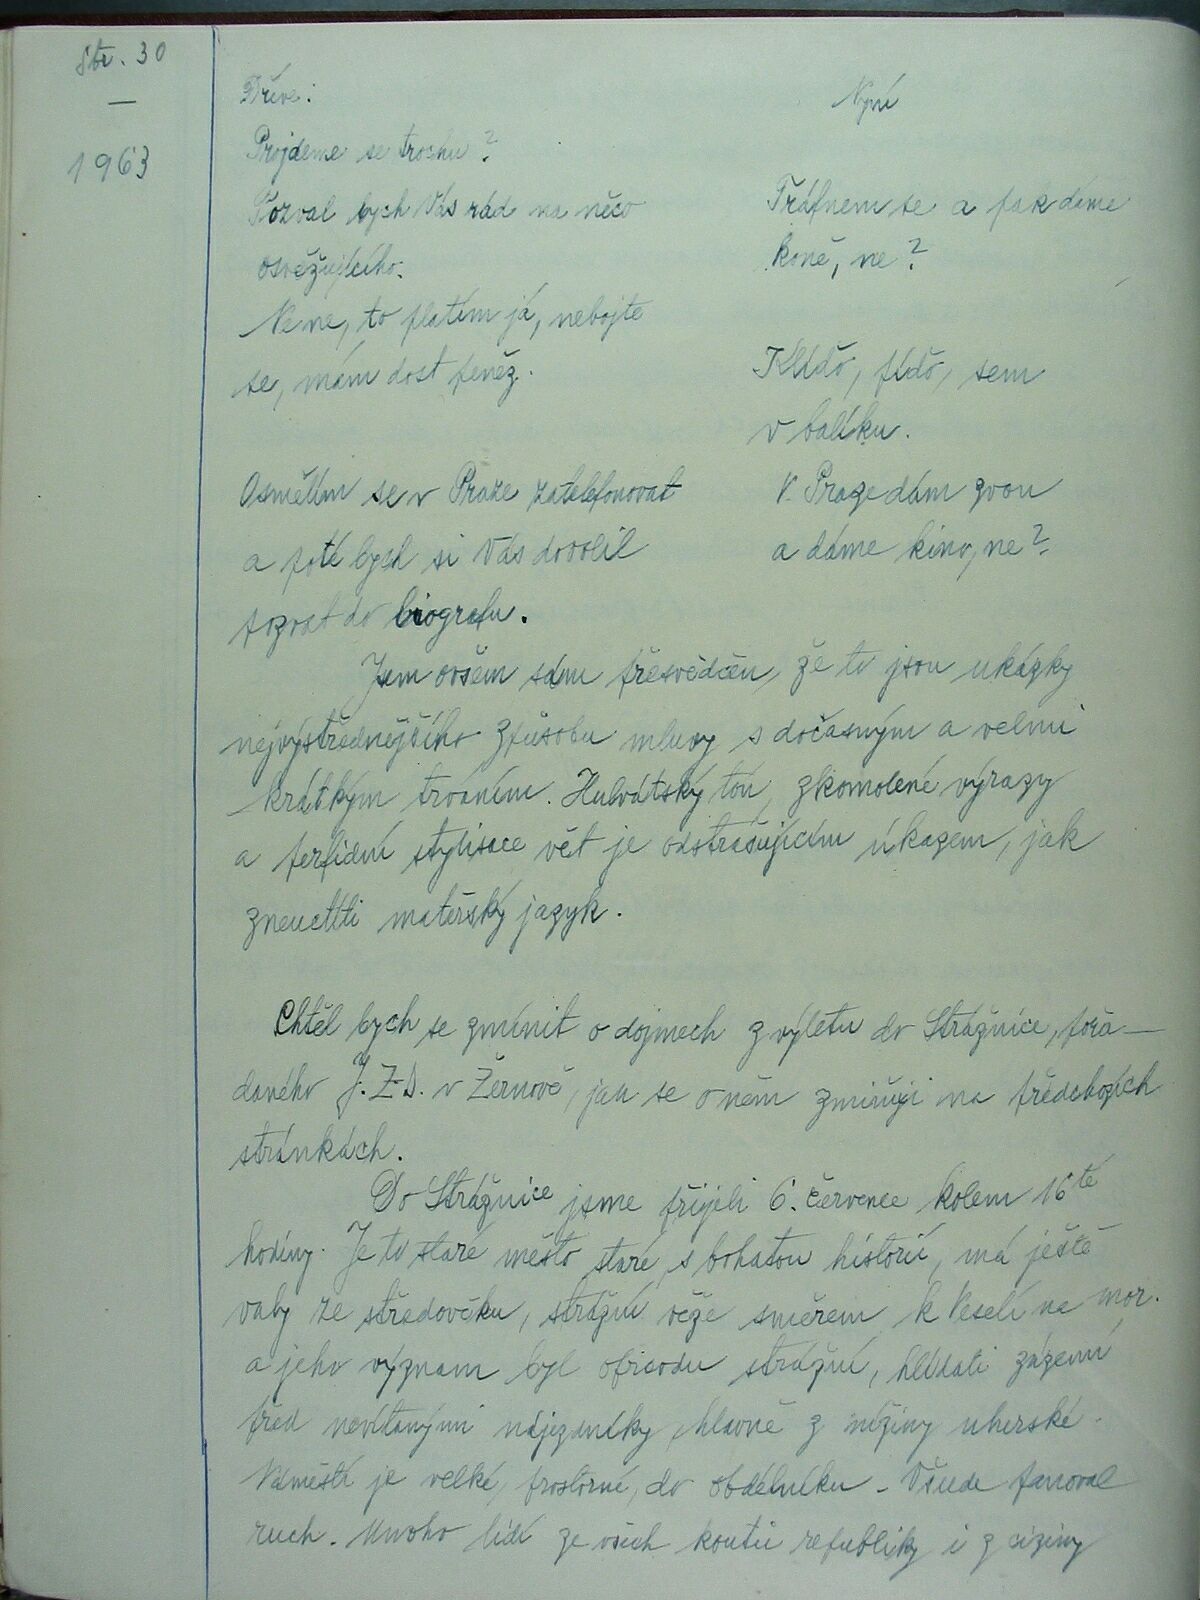 Str. 30
—
1963
Dříve:
Nyní
Projdeme se trochu?
Pozval bych Vás rád na něco
osvěžujícího.
Tráfnem se a pak dáme
koně, ne?
Ne ne, to platím já, nebojte
se, mám dost peněz.
Klídö, pídö, sem
v balíku.
Osmělím se v Praze zatelefonovat
a poté bych si Vás dovolil
pozvat do biografu.
V Praze dám zvon
a dáme kino, ne?
Jsem ovšem sám přesvědčen, že to jsou ukázky
nejvýstřednějšího způsobu mluvy s dočasným a velmi
krátkým trváním. Hulvátský tón, zkomolené výrazy
a perfidní stylisace vět je odstrašujícím úkazem, jak
zneuctíti mateřský jazyk.
Chtěl bych se zmínit o dojmech z výletu do Strážnice, pořá-
daného J.Z.D. v Žernově, jak se o něm zmiňuji na předchozích
stránkách.
Do Strážnice jsme přijeli 6. července kolem 16té
hodiny. Je to staré město staré, s bohatou historií, má ještě
valy ze středověku, strážní věže směrem k Veselí na Mor.
a jeho význam byl opravdu strážní, hlídati zázemí
před nevítanými nájezdníky, hlavně z nížiny uherské.
Náměstí je velké, prostorné, do obdélníku. Všude panoval
ruch. Mnoho lidí ze všech koutů republiky i z ciziny